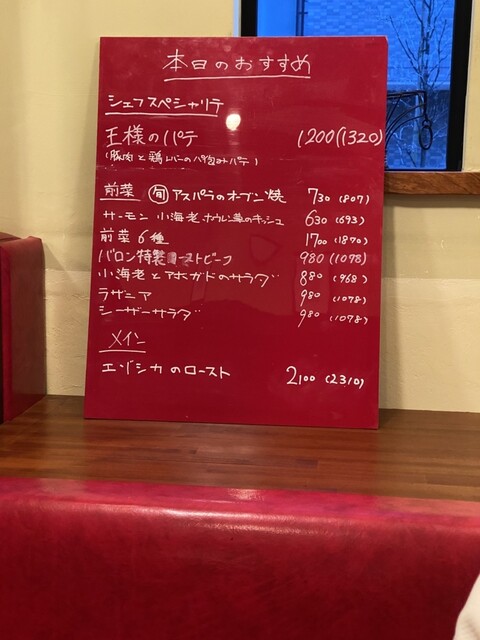 本日のおすすめ
シェフスペシャリテ
王様のパテ 1200(1320)
(豚肉と鶏レバーのパイ包みパテ)
前菜 旬 アスパラのオーブン焼 730 (807)
サーモン 小海老 ホウレン草のキッシュ 630 (693)
前菜6種 1700 (1870)
バロン特製ローストビーフ 980 (1078)
小海老とアボガドのサラダ 880 (968)
ラザニア 980 (1078)
シーザーサラダ 980 (1078)
メイン
エゾシカのロースト 2100 (2310)